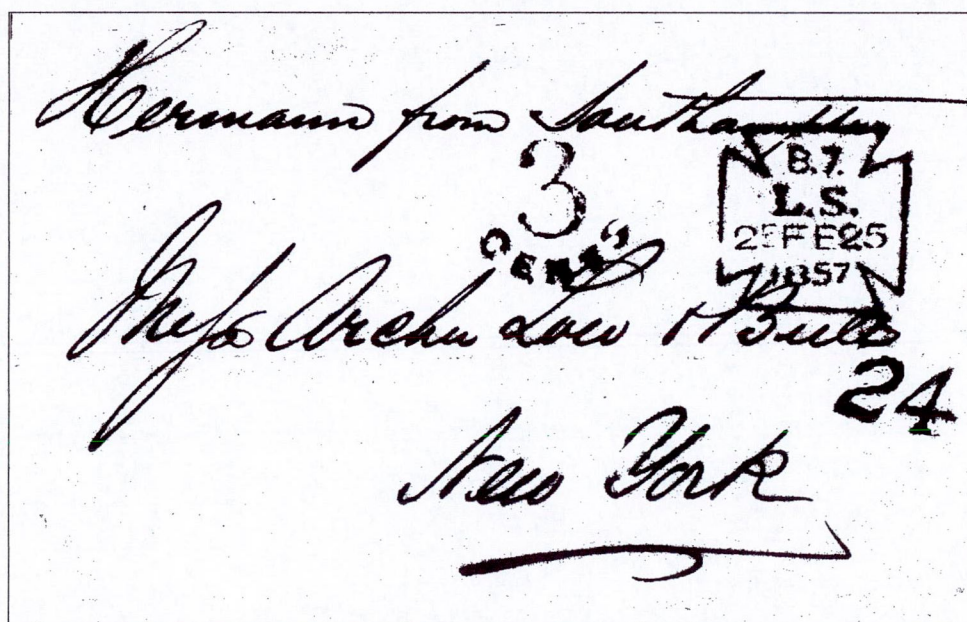 Hermann from Southampton
3
CENTS
B.7.
L.S.
2 FE25
1857
Messrs Archer Low & Bull
24
New York